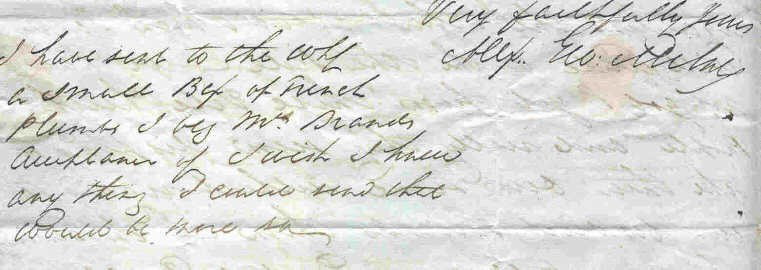 Very faithfully Yours
Alex. Geo:
I have sent to the
a Small Box of French
Plumbs I beg Mrs. Brands
acceptance of I wish I knew
any thing I could send that
would be more so